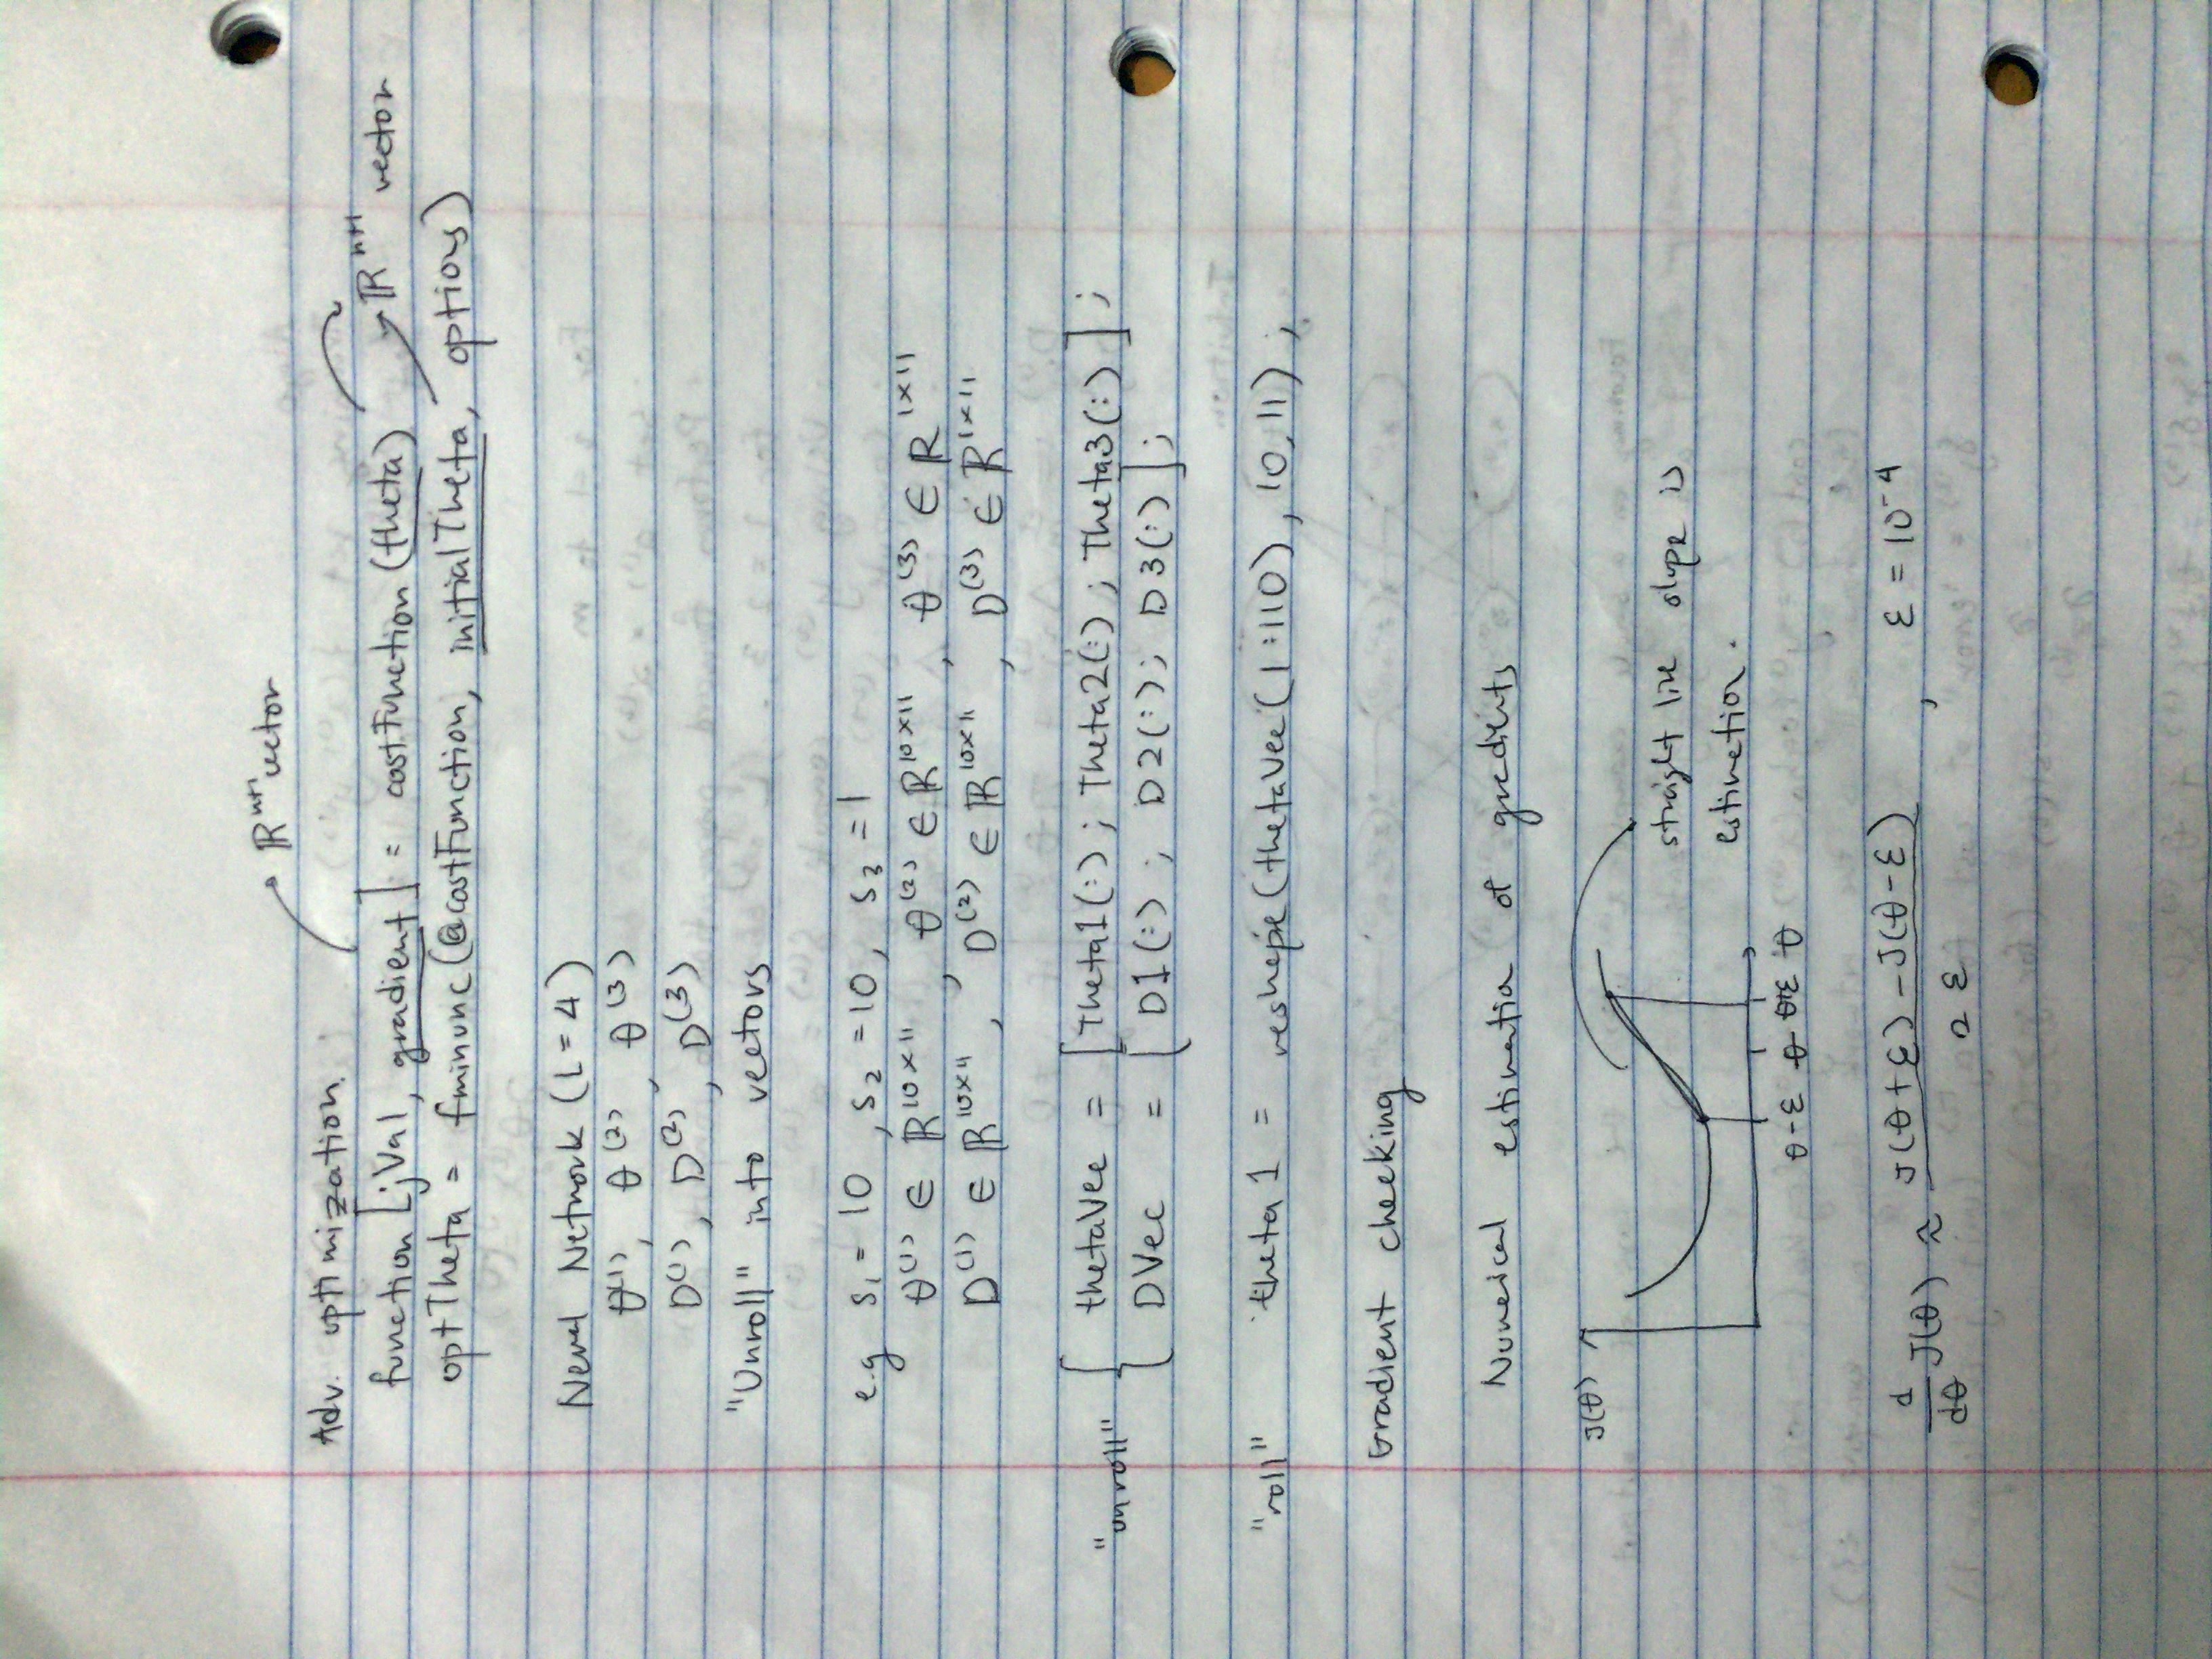 ℝⁿ⁺¹ vector
Adv. optimization.
function [jVal, gradient] = costFunction(theta) ℝⁿ⁺¹ vector
optTheta = fminunc(@costFunction, initialTheta, options)
Neural Network (L = 4)
θ⁽¹⁾, θ⁽²⁾, θ⁽³⁾
D⁽¹⁾, D⁽²⁾, D⁽³⁾
"Unroll" into vectors
e.g s₁ = 10, s₂ = 10, s₃ = 1
θ⁽¹⁾ ∈ ℝ¹⁰ˣ¹¹, θ⁽²⁾ ∈ ℝ¹⁰ˣ¹¹, θ⁽³⁾ ∈ ℝ¹ˣ¹¹
D⁽¹⁾ ∈ ℝ¹⁰ˣ¹¹, D⁽²⁾ ∈ ℝ¹⁰ˣ¹¹, D⁽³⁾ ∈ ℝ¹ˣ¹¹
"unroll" { thetaVec = [Theta1(:) ; Theta2(:) ; Theta3(:)];
DVec = [D1(:) ; D2(:); D3(:)];
"roll" theta1 = reshape(thetaVec(1:110), 10, 11);
Gradient checking
Numerical estimation of gradients
J(θ)
straight line slope is
estimation.
θ-ε θ θ+ε θ
d/dθ J(θ) ≈ (J(θ+ε) - J(θ-ε)) / 2ε , ε = 10⁻⁴